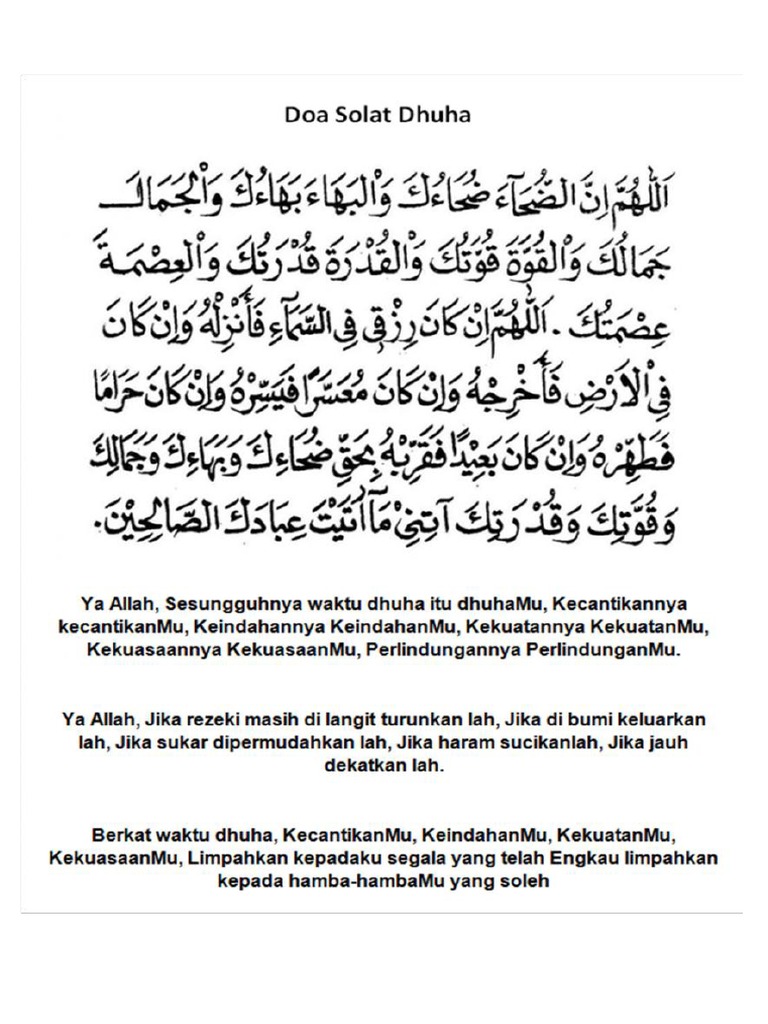 Doa Solat Dhuha
اَللّٰهُمَّ اِنَّ الضُّحَآءَ ضُحَاءُكَ وَالْبَهَاءَ بَهَاءُكَ وَالْجَمَالَ
جَمَالُكَ وَالْقُوَّةَ قُوَّتُكَ وَالْقُدْرَةَ قُدْرَتُكَ وَالْعِصْمَةَ
عِصْمَتُكَ . اَللّٰهُمَّ اِنْ كَانَ رِزْقِى فِى السَّمَآءِ فَأَنْزِلْهُ وَاِنْ كَانَ
فِى الْاَرْضِ فَأَخْرِجْهُ وَاِنْ كَانَ مُعَسَّرًا فَيَسِّرْهُ وَاِنْ كَانَ حَرَامًا
فَطَهِّرْهُ وَاِنْ كَانَ بَعِيْدًا فَقَرِّبْهُ بِحَقِّ ضُحَاءِكَ وَبَهَاءِكَ وَجَمَالِكَ
وَقُوَّتِكَ وَقُدْرَتِكَ آتِنِيْ مَآ اَتَيْتَ عِبَادَكَ الصَّالِحِيْنَ.
Ya Allah, Sesungguhnya waktu dhuha itu dhuhaMu, Kecantikannya
kecantikanMu, Keindahannya KeindahanMu, Kekuatannya KekuatanMu,
Kekuasaannya KekuasaanMu, Perlindungannya PerlindunganMu.
Ya Allah, Jika rezeki masih di langit turunkan lah, Jika di bumi keluarkan
lah, Jika sukar dipermudahkan lah, Jika haram sucikanlah, Jika jauh
dekatkan lah.
Berkat waktu dhuha, KecantikanMu, KeindahanMu, KekuatanMu,
KekuasaanMu, Limpahkan kepadaku segala yang telah Engkau limpahkan
kepada hamba-hambaMu yang soleh